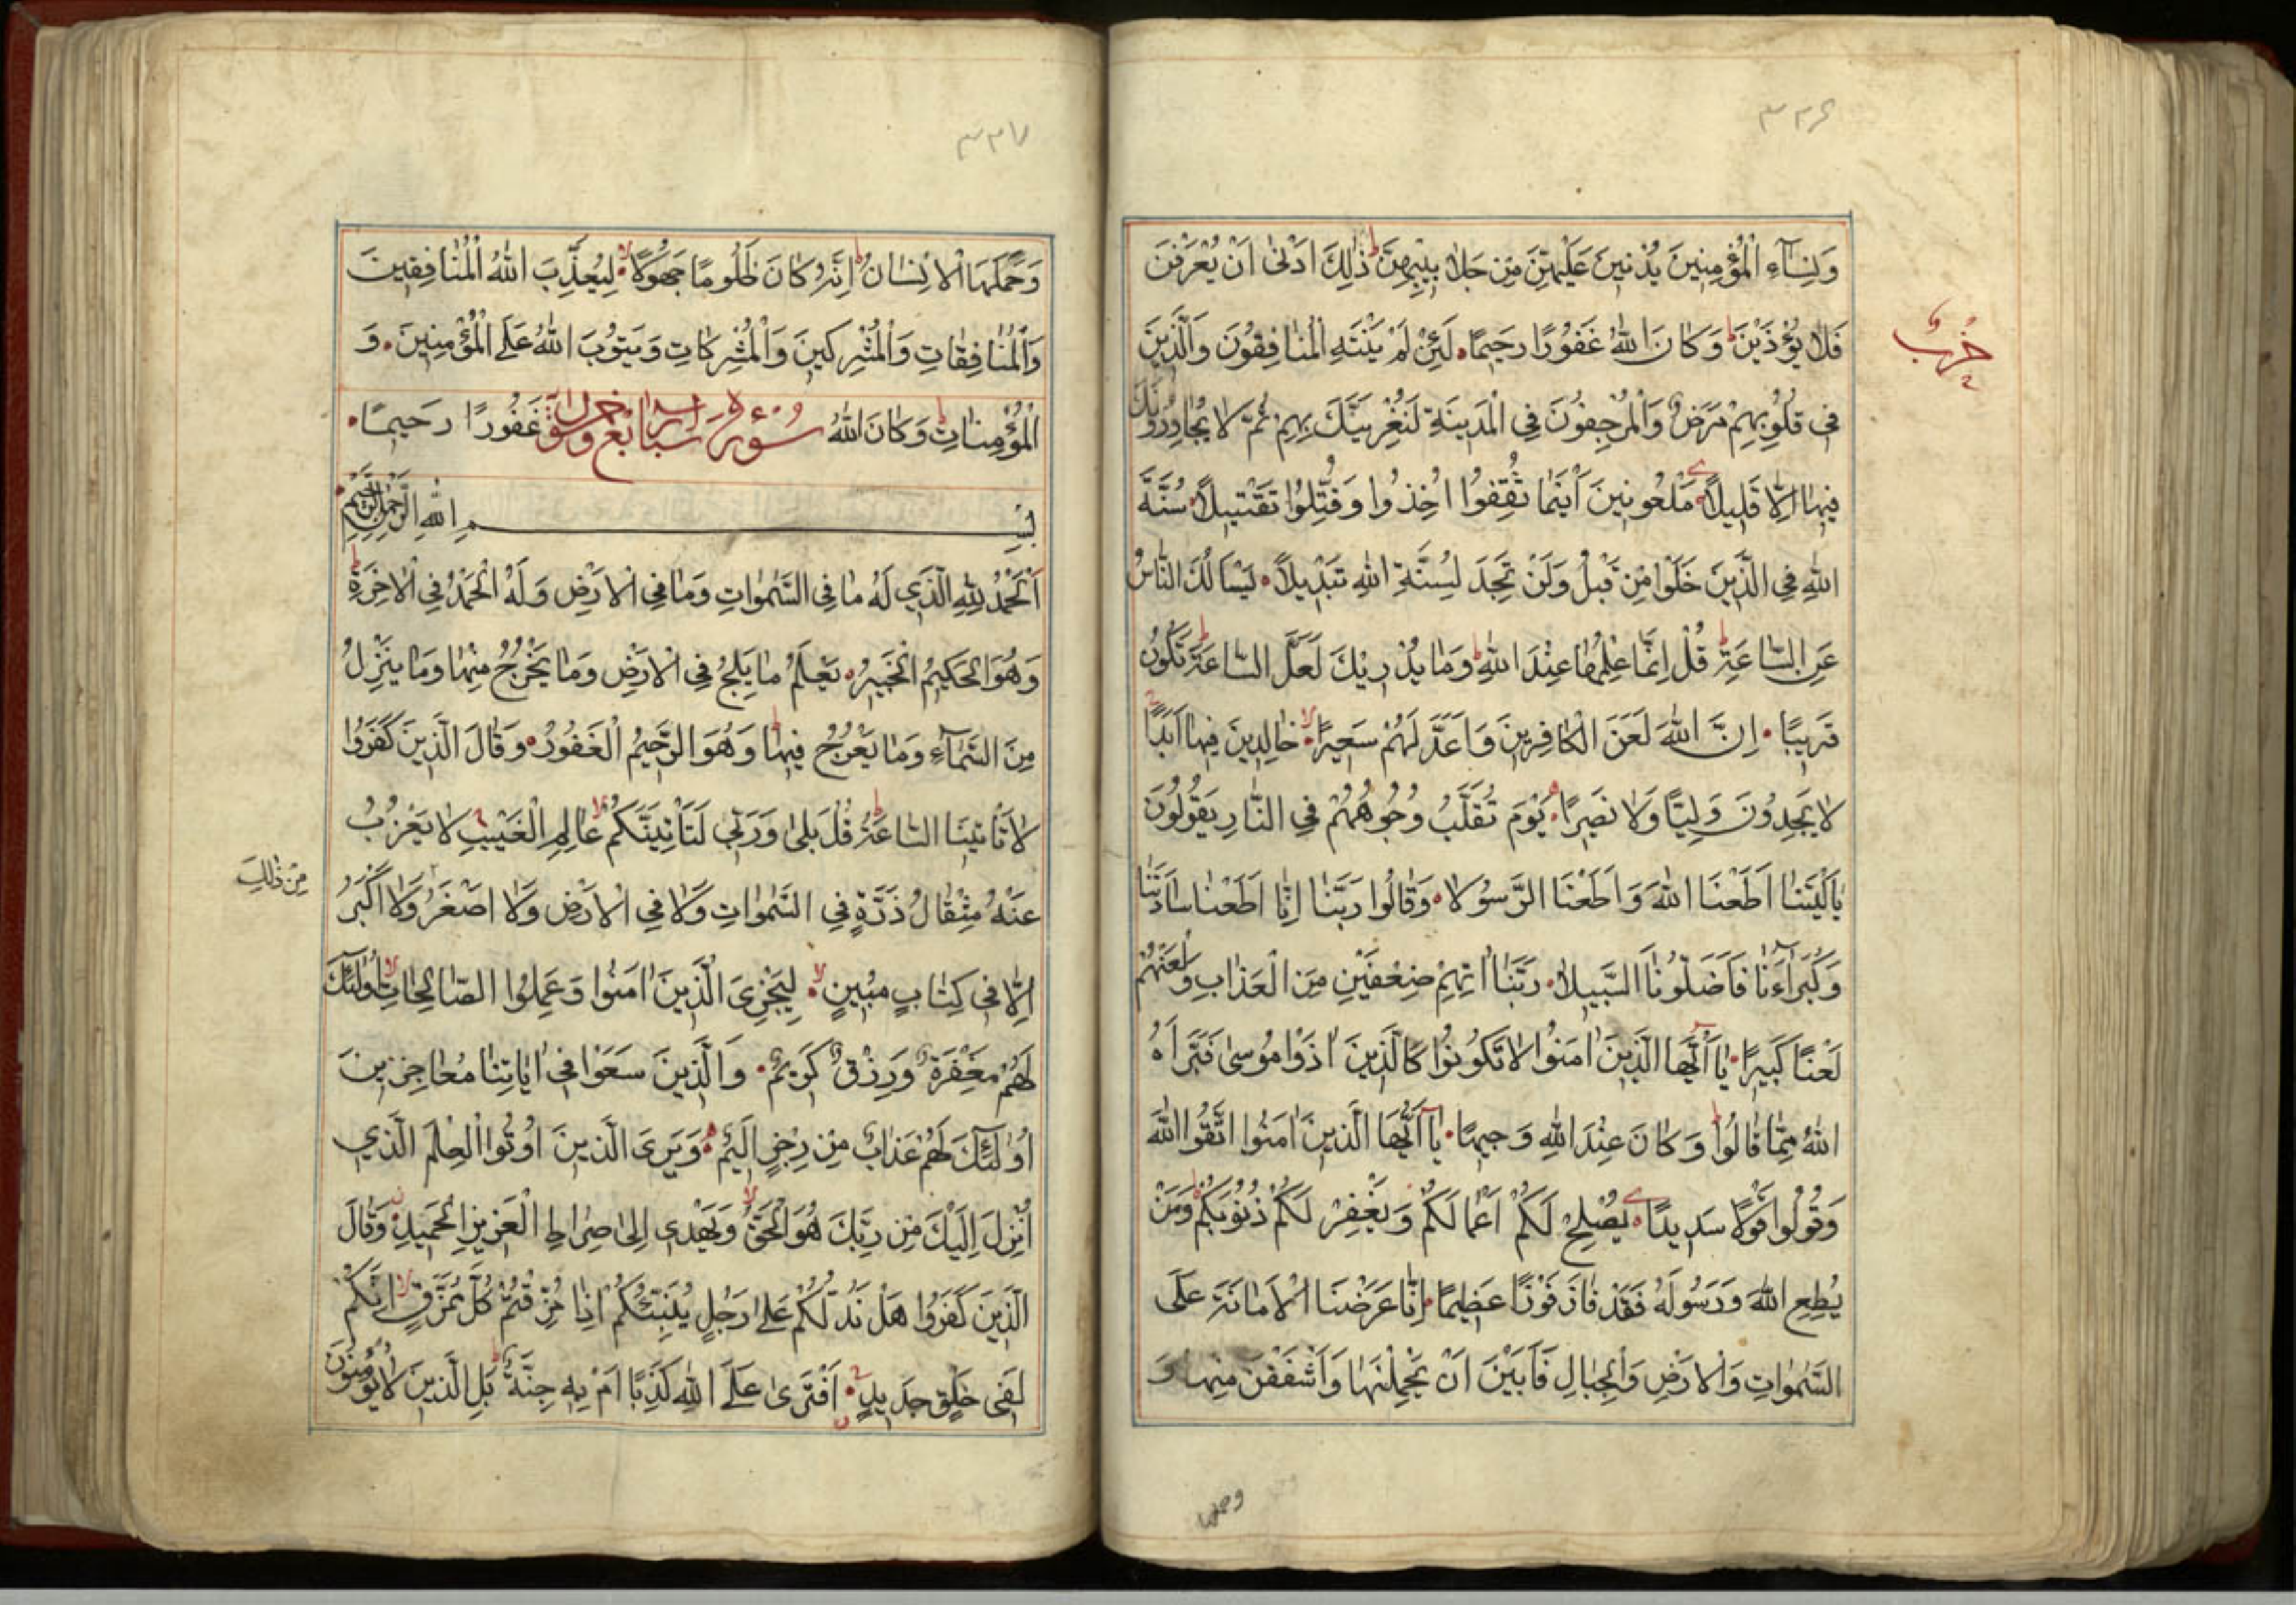 ٣٣٦
حزب
وَنِسَآءِ الْمُؤْمِنِينَ يُدْنِينَ عَلَيْهِنَّ مِنْ جَلَابِيبِهِنَّ ذٰلِكَ اَدْنٰى اَنْ يُعْرَفْنَ
فَلَا يُؤْذَيْنَ وَكَانَ اللّٰهُ غَفُورًا رَحِيمًا لَئِنْ لَمْ يَنْتَهِ الْمُنَافِقُونَ وَالَّذِينَ
فِى قُلُوبِهِمْ مَرَضٌ وَالْمُرْجِفُونَ فِى الْمَدِينَةِ لَنُغْرِيَنَّكَ بِهِمْ ثُمَّ لَا يُجَاوِرُونَكَ
فِيهَا اِلَّا قَلِيلًا مَلْعُونِينَ اَيْنَمَا ثُقِفُوا اُخِذُوا وَقُتِّلُوا تَقْتِيلًا سُنَّةَ
اللّٰهِ فِى الَّذِينَ خَلَوْا مِنْ قَبْلُ وَلَنْ تَجِدَ لِسُنَّةِ اللّٰهِ تَبْدِيلًا يَسْاَلُكَ النَّاسُ
عَنِ السَّاعَةِ قُلْ اِنَّمَا عِلْمُهَا عِنْدَ اللّٰهِ وَمَا يُدْرِيكَ لَعَلَّ السَّاعَةَ تَكُونُ
قَرِيبًا اِنَّ اللّٰهَ لَعَنَ الْكَافِرِينَ وَاَعَدَّ لَهُمْ سَعِيرًا خَالِدِينَ فِيهَا اَبَدًا
لَا يَجِدُونَ وَلِيًّا وَلَا نَصِيرًا يَوْمَ تُقَلَّبُ وُجُوهُهُمْ فِى النَّارِ يَقُولُونَ
يَا لَيْتَنَا اَطَعْنَا اللّٰهَ وَاَطَعْنَا الرَّسُولَا وَقَالُوا رَبَّنَا اِنَّا اَطَعْنَا سَادَتَنَا
وَكُبَرَآءَنَا فَاَضَلُّونَا السَّبِيلَا رَبَّنَا اٰتِهِمْ ضِعْفَيْنِ مِنَ الْعَذَابِ وَالْعَنْهُمْ
لَعْنًا كَبِيرًا يَا اَيُّهَا الَّذِينَ اٰمَنُوا لَا تَكُونُوا كَالَّذِينَ اٰذَوْا مُوسٰى فَبَرَّاَهُ
اللّٰهُ مِمَّا قَالُوا وَكَانَ عِنْدَ اللّٰهِ وَجِيهًا يَا اَيُّهَا الَّذِينَ اٰمَنُوا اتَّقُوا اللّٰهَ
وَقُولُوا قَوْلًا سَدِيدًا يُصْلِحْ لَكُمْ اَعْمَالَكُمْ وَيَغْفِرْ لَكُمْ ذُنُوبَكُمْ وَمَنْ
يُطِعِ اللّٰهَ وَرَسُولَهُ فَقَدْ فَازَ فَوْزًا عَظِيمًا اِنَّا عَرَضْنَا الْاَمَانَةَ عَلَى
السَّمٰوَاتِ وَالْاَرْضِ وَالْجِبَالِ فَاَبَيْنَ اَنْ يَحْمِلْنَهَا وَاَشْفَقْنَ مِنْهَا وَ
وحملها
٣٣٧
وَحَمَلَهَا الْاِنْسَانُ اِنَّهُ كَانَ ظَلُومًا جَهُولًا لِيُعَذِّبَ اللّٰهُ الْمُنَافِقِينَ
وَالْمُنَافِقَاتِ وَالْمُشْرِكِينَ وَالْمُشْرِكَاتِ وَيَتُوبَ اللّٰهُ عَلَى الْمُؤْمِنِينَ وَ
الْمُؤْمِنَاتِ وَكَانَ اللّٰهُ غَفُورًا رَحِيمًا
سورة سبا
بِسْمِ اللّٰهِ الرَّحْمٰنِ الرَّحِيمِ
اَلْحَمْدُ لِلّٰهِ الَّذِى لَهُ مَا فِى السَّمٰوَاتِ وَمَا فِى الْاَرْضِ وَلَهُ الْحَمْدُ فِى الْاٰخِرَةِ
وَهُوَ الْحَكِيمُ الْخَبِيرُ يَعْلَمُ مَا يَلِجُ فِى الْاَرْضِ وَمَا يَخْرُجُ مِنْهَا وَمَا يَنْزِلُ
مِنَ السَّمَآءِ وَمَا يَعْرُجُ فِيهَا وَهُوَ الرَّحِيمُ الْغَفُورُ وَقَالَ الَّذِينَ كَفَرُوا
لَا تَاْتِينَا السَّاعَةُ قُلْ بَلٰى وَرَبِّى لَتَاْتِيَنَّكُمْ عَالِمِ الْغَيْبِ لَا يَعْزُبُ
عَنْهُ مِثْقَالُ ذَرَّةٍ فِى السَّمٰوَاتِ وَلَا فِى الْاَرْضِ وَلَا اَصْغَرُ وَلَا اَكْبَرُ
مِنْ ذٰلِكَ
اِلَّا فِى كِتَابٍ مُبِينٍ لِيَجْزِىَ الَّذِينَ اٰمَنُوا وَعَمِلُوا الصَّالِحَاتِ اُولٰئِكَ
لَهُمْ مَغْفِرَةٌ وَرِزْقٌ كَرِيمٌ وَالَّذِينَ سَعَوْا فِى اٰيَاتِنَا مُعَاجِزِينَ
اُولٰئِكَ لَهُمْ عَذَابٌ مِنْ رِجْزٍ اَلِيمٌ وَيَرَى الَّذِينَ اُوتُوا الْعِلْمَ الَّذِى
اُنْزِلَ اِلَيْكَ مِنْ رَبِّكَ هُوَ الْحَقَّ وَيَهْدِى اِلٰى صِرَاطِ الْعَزِيزِ الْحَمِيدِ وَقَالَ
الَّذِينَ كَفَرُوا هَلْ نَدُلُّكُمْ عَلٰى رَجُلٍ يُنَبِّئُكُمْ اِذَا مُزِّقْتُمْ كُلَّ مُمَزَّقٍ اِنَّكُمْ
لَفِى خَلْقٍ جَدِيدٍ اَفْتَرٰى عَلَى اللّٰهِ كَذِبًا اَمْ بِهِ جِنَّةٌ بَلِ الَّذِينَ لَا يُؤْمِنُونَ